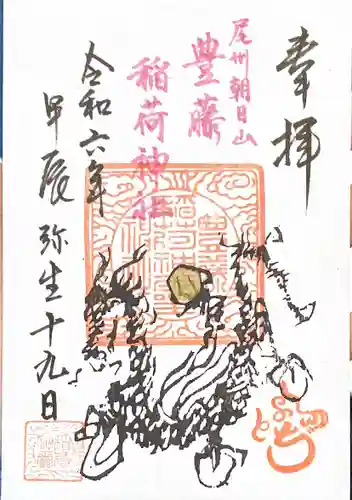 奉拝
尾州朝日山
豊藤
稲荷神社
令和六年
甲辰 弥生十九日